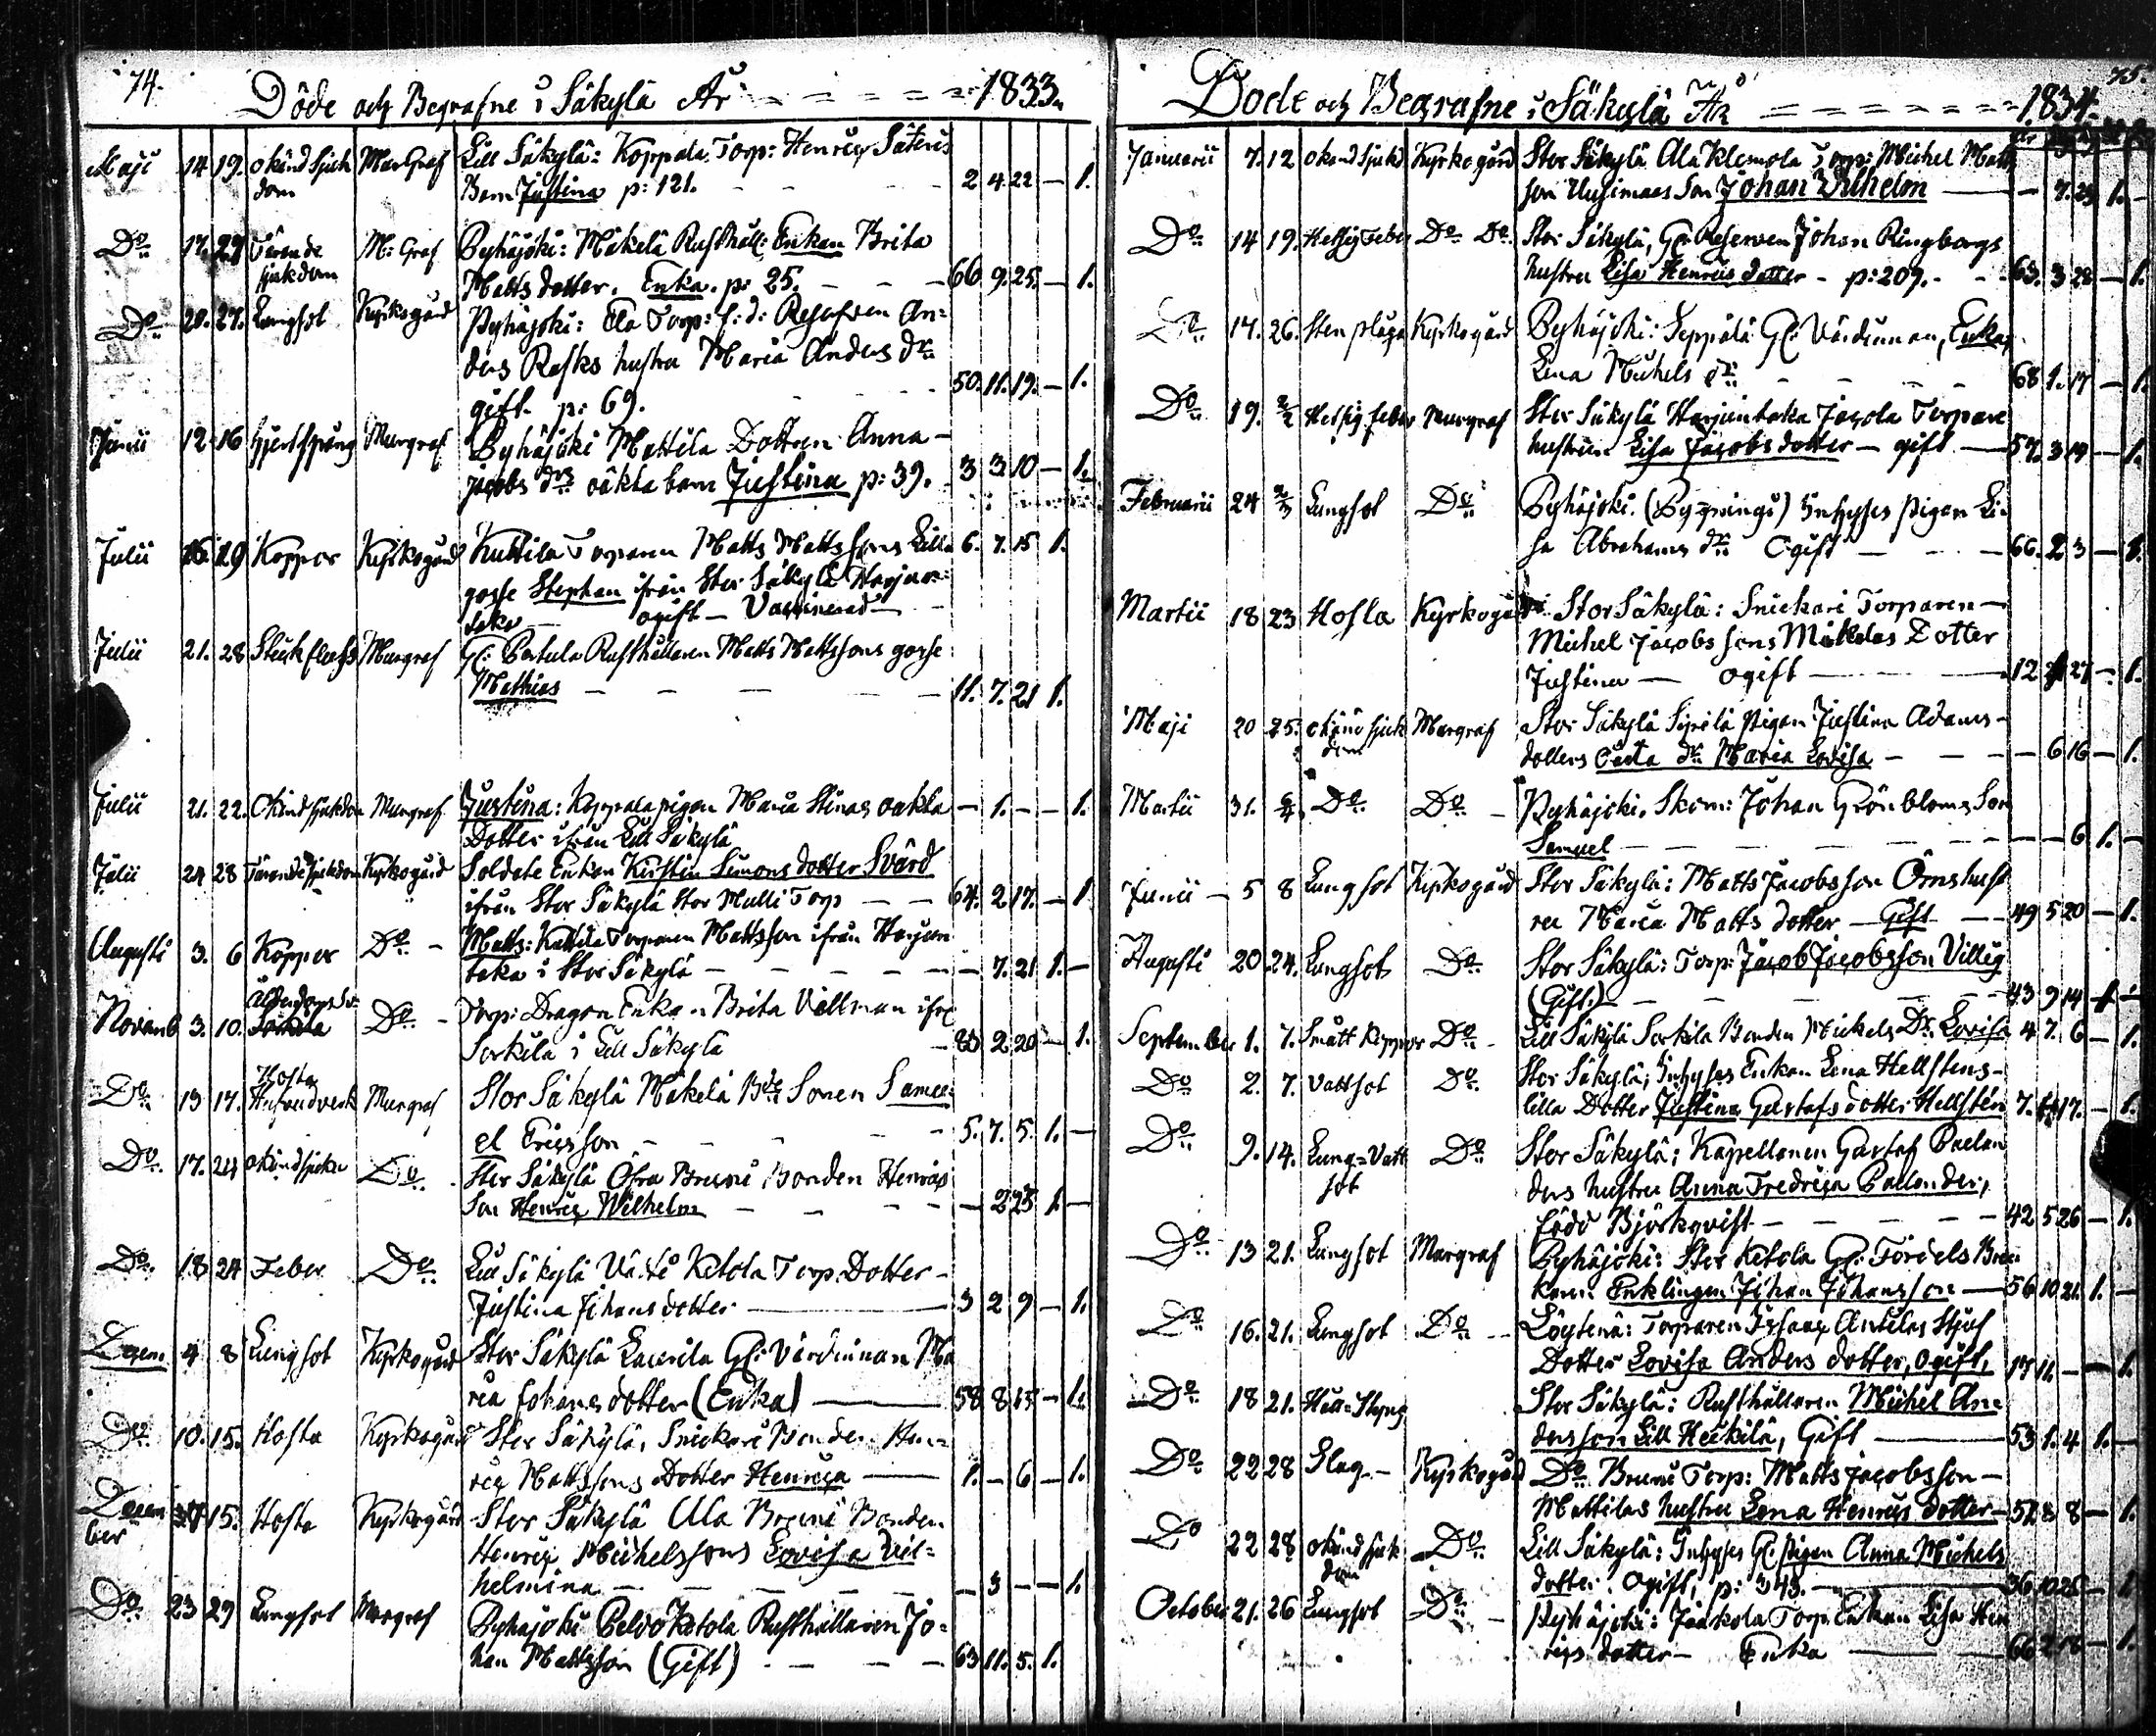 74.
Döde och Begrafne i Säkylä År 1833.
Maji 14 19. okänd sjuk Murgraf Lill Säkylä: Koppala Torp: Henric Säteris
dom Barn Justina p: 121. 2 4 22 — 1.
Do 17. 29 Tärande M: Graf Pyhäjoki: Mäkelä Rusthåll: Enkan Brita
sjukdom Matts dotter. Enka. p: 25. 66 9. 25. — 1.
Do 20. 27. Lungsot Kyrkogård Pyhäjoki: Ela Torp: f: d: An=
ders Rasks hustru Maria Anders dr
gift p: 69. 50. 11. 19. — 1.
Junii 12 16 Murgraf Pyhäjoki Mattila Dottren Anna
Jacobs drs oäkta barn Justina p: 39. 3 3 10 — 1.
Julii 16. 19 Koppor Kyrkogård Kuttila Torparen Matts Mattssons Lilla 6. 7. 15 1.
gosse Stephan ifrån Stor Säkylä Harjun=
ogift — Vaccinerad —
Julii 21. 28 Murgraf Gl: Pertula Rusthållaren Matts Mattssons gosse
Mathias — — — — 11. 7. 21 1.
Julii 21. 22. Okänd sjukdom Murgraf Justina: Koppala pigan Maria Stinas oäkta — 1. — — 1.
Dotter ifrån Lill Säkylä
Julii 24 28 Tärande sjukdom Kyrkogård Soldats Enkan Kirstin Simons dotter Svärd
ifrån Stor Säkylä Stor Mulli Torp — — 64. 2 17. — 1
Augusti 3. 6 Koppor Do — Matts: Kuttila Torparen Mattsson ifrån Harjun
taka i Stor Säkylä — — — — — — 7. 21 1. —
Novemb 3. 10. Do — Torp: Dragon Enkan Brita Vällman ifrå
Sorkila i Lill Säkylä 83 2 20 — 1.
Hosta
Do 13 17. Murgraf Stor Säkylä Mäkelä Bde Sonen Samu=
el Ericsson — — — 5. 7. 5. 1. —
Do 17. 24 okänd sjukd Do — Stor Säkylä Öfra Bruni Bonden Henrics
Son Henric Wilhelm — — — — 2 23 1. —
Do 18 24 Feber Do Lill Säkylä Ketola Torp: Dotter —
Justina Johans dotter — 3 2 9 — 1.
Decem 4 8 Lungsot Kyrkogård Stor Säkylä Laurila Gl: Värdinnan Ma
ria Johans dotter (Enka) — 58 8 13 — 1.
Do 10. 15. Hosta Kyrkogård Stor Säkylä, Snickari Bonden Hen=
ric Mattssons Dotter Henrica — 1. — 6 — 1.
Decem 15. Hosta Kyrkogård Stor Säkylä Ala Bruni Bonden
ber Henric Michelssons Lovisa Vil=
helmina — — — — 3 — — 1.
Do 23 29 Lungsot Murgraf Pyhäjoki Peldo Ketola Rusthållaren Jo=
han Mattsson (Gift) — — — 63 11. 5. 1.
75.
Döde och Begrafne i Säkylä År 1834.
Januarii 7. 12 okänd sjukd Kyrkogård Stor Säkylä Ala Klemola Torp: Michel Matts
son Uusimaas Son Johan Vilhelm — — 7. 23 1. —
Do 14 19. Hettsig Feber Do Do Stor Säkylä, Johan Ringborgs
hustru Lisa Henrics dotter — p: 209. — 63. 3 28 — 1.
Do 14. 26. Sten plåga Kyrkogård Pyhäjoki: Seppälä Gl: Värdinnan, Enkan
Lena Michels dr — — — 68 1. 17 — 1.
Do 19. 2/2 Hetsig feber Murgraf Stor Säkylä Harjuntaka Jacola Torpare
hustrun Lisa Jacobs dotter — gift — 57. 3 19 — 1.
Februarii 24 2/3 Lungsot Do Pyhäjoki. Inhyses pigan Li=
sa Abrahams dr Ogift — — — 66. 2 3 — 1.
Martii 18 23 Hosta Kyrkogård Stor Säkylä: Snickari Torparen —
Michel Jacobssons Mikolas Dotter
Justina — ogift — 12 27 — 1.
Maji 20 25. okänd sjuk Murgraf Stor Säkylä pigan Justina Adams —
dom dotters Oäkta dr Maria Lovisa — — — — 6 16 — 1.
Martii 31. 6/4 Do Do — Pyhäjoki. Skom: Johan Grönbloms Son
Samuel — — — — — — 6 1. —
Junii — 5 8 Lungsot Kyrkogård Stor Säkylä: Matts Jacobsson Örns hust
ru Maria Matts dotter — Gift — 49 5 20 — 1.
Augusti 20 24. Lungsot Do Stor Säkylä: Torp: Jacob Jacobsson Villig
(Gift.) — — — — — — 43 9 14 1 —
September 1. 7. Smått Koppor Do — Lill Säkylä Sorkila Bonden Michels Dr Lovisa 4 7. 6 — 1.
Do 2. 7. Vattsot Do Stor Säkylä; Inhyses Enkan Lena Hellstens —
lilla Dotter Justina Gustafs dotter Hellstén 7. 17. — 1.
Do 9. 14. Lung=Vatt Do Stor Säkylä: Kapellanen Gustaf Paclan
sot ders hustru Anna Fredrica Paclander,
född Björkqvist — — — — — 42 5 26 — 1.
Do 13 21. Lungsot Murgraf Pyhäjoki: Stor Ketola Gl: Fördels
karen Enklingen Johan Johansson — 56 10 21. 1. —
Do 16. 21. Lungsot Do — Löytenä: Torparen Isaac Antilas Stjuf
Dotter Lovisa Anders dotter, ogift, 17 11. — — 1.
Do 18 21. Håll=Styng Stor Säkylä: Rusthållaren Michel An=
dersson Lill Heikilä, Gift — 53 1. 4 1. —
Do 22 28 Slag — Kyrkogård Do Bruni Torp: Matts Jacobsson —
Mattilas hustru Lena Henrics dotter — 52 8 8 — 1.
Do 22 28 okänd sjuk Do Lill Säkylä: Inhyses Gl: pigan Anna Michels
dom dotter. Ogift, p: 343. — 36 10 25 — 1
October 21. 26 Lungsot Do — Pyhäjoki: Jaakola Torp: Enkan Lisa Hen
rics dotter — Enka — 66 2 — 1.